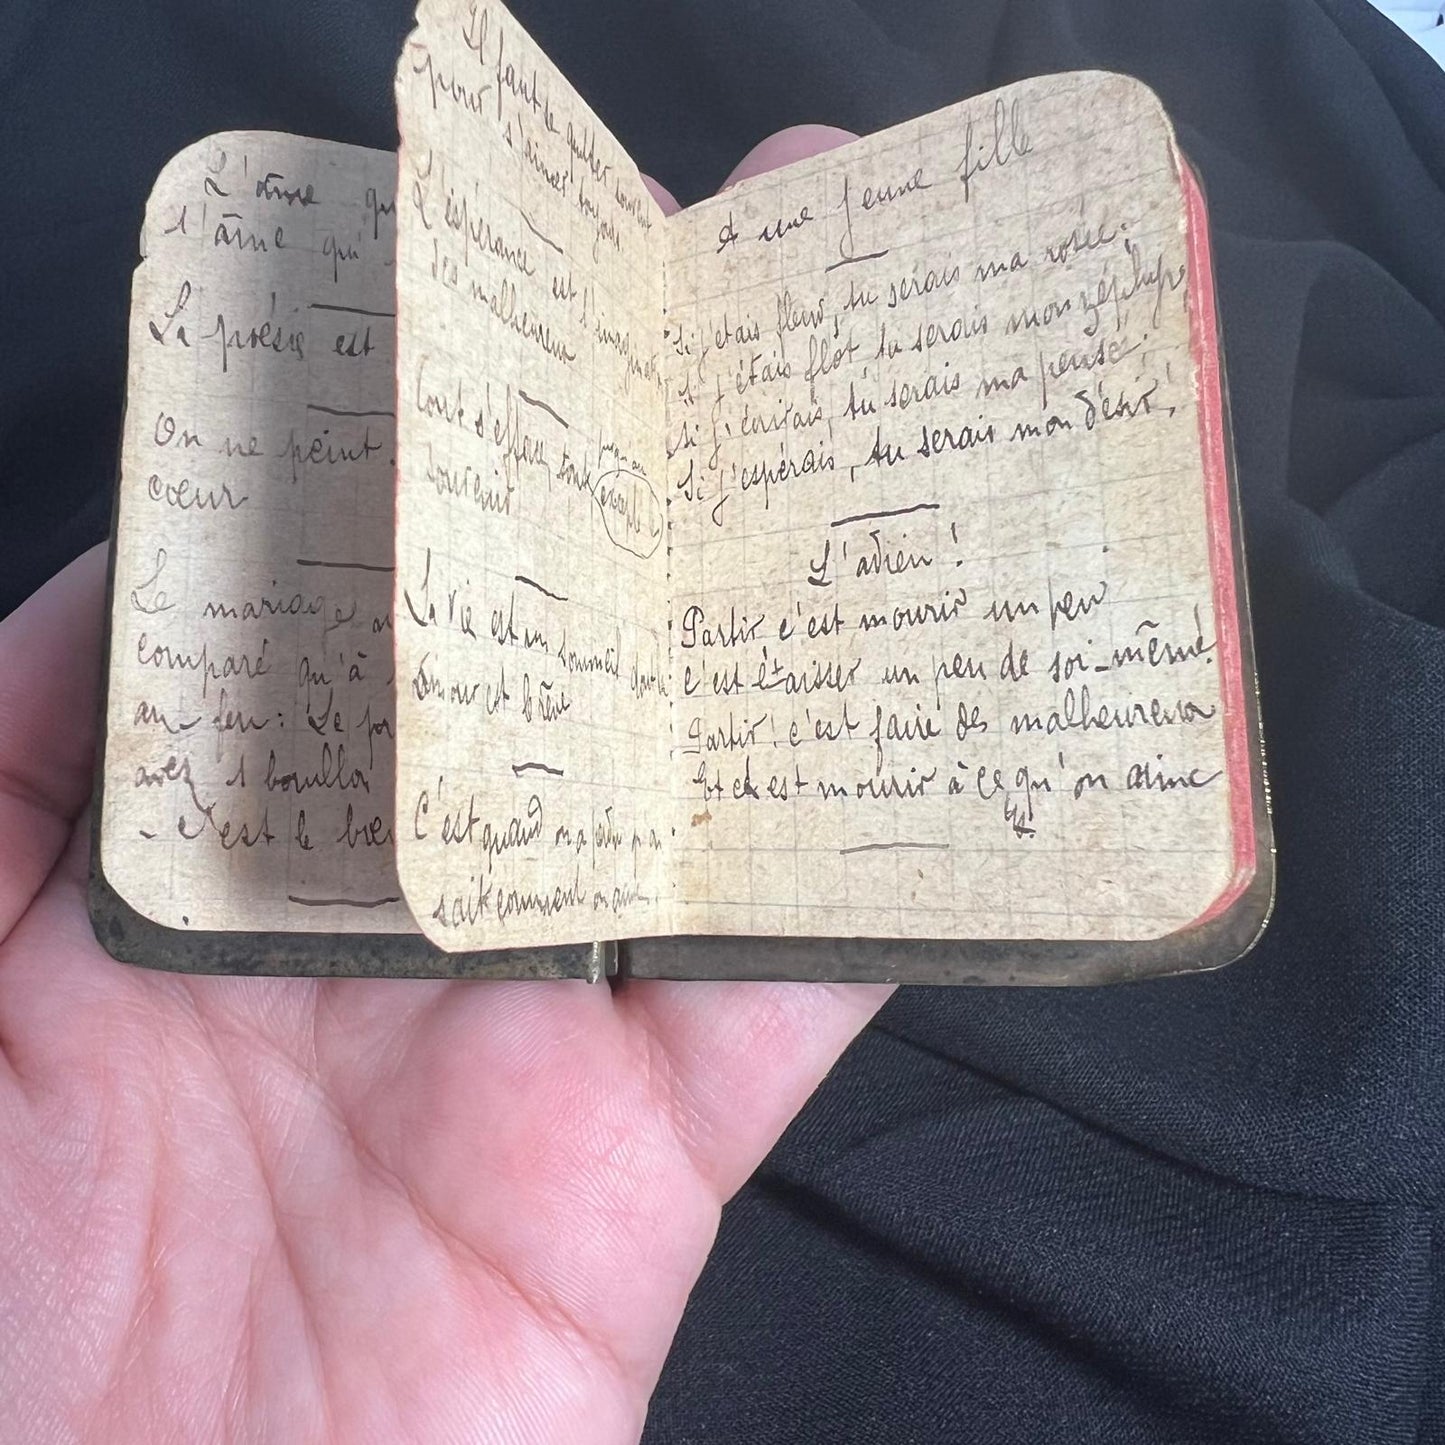 L'âme qu
l'âme qu'
La poésie est
On ne peint
cœur
Le mariage
comparé qu'à
au feu: Le
avez 1 bouillo
- C'est le
Il faut se quitter souvent
pour s'aimer toujours
L'espérance est l'imagination
des malheureux
Tout s'efface, tout jusqu'au
souvenir
La vie est un sommeil dont
l'amour est le rêve
C'est quand on a perdu qu'on
sait comment on aime.
A une jeune fille
Si j'étais fleur, tu serais ma rosée.
Si j'étais flot tu serais mon zéphyr
Si j'écrivais, tu serais ma pensé.
Si j'espérais, tu serais mon désir!
L'adieu!
Partir c'est mourir un peu
C'est laisser un peu de soi-même
Partir! c'est faire des malheureux
Et c'est mourir à ce qu'on aime